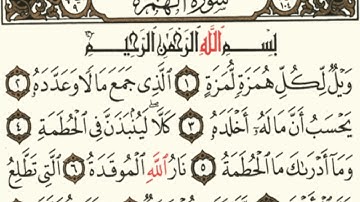 سورة الهمزة
بسم الله الرحمن الرحيم
وَيْلٌ لِّكُلِّ هُمَزَةٍ لُّمَزَةٍ ۝١ الَّذِي جَمَعَ مَالًا وَعَدَّدَهُ ۝٢
يَحْسَبُ أَنَّ مَالَهُ أَخْلَدَهُ ۝٣ كَلَّا ۖ لَيُنبَذَنَّ فِي الْحُطَمَةِ ۝٤
وَمَا أَدْرَىٰكَ مَا الْحُطَمَةُ ۝٥ نَارُ اللَّهِ الْمُوقَدَةُ ۝٦ الَّتِي تَطَّلِعُ